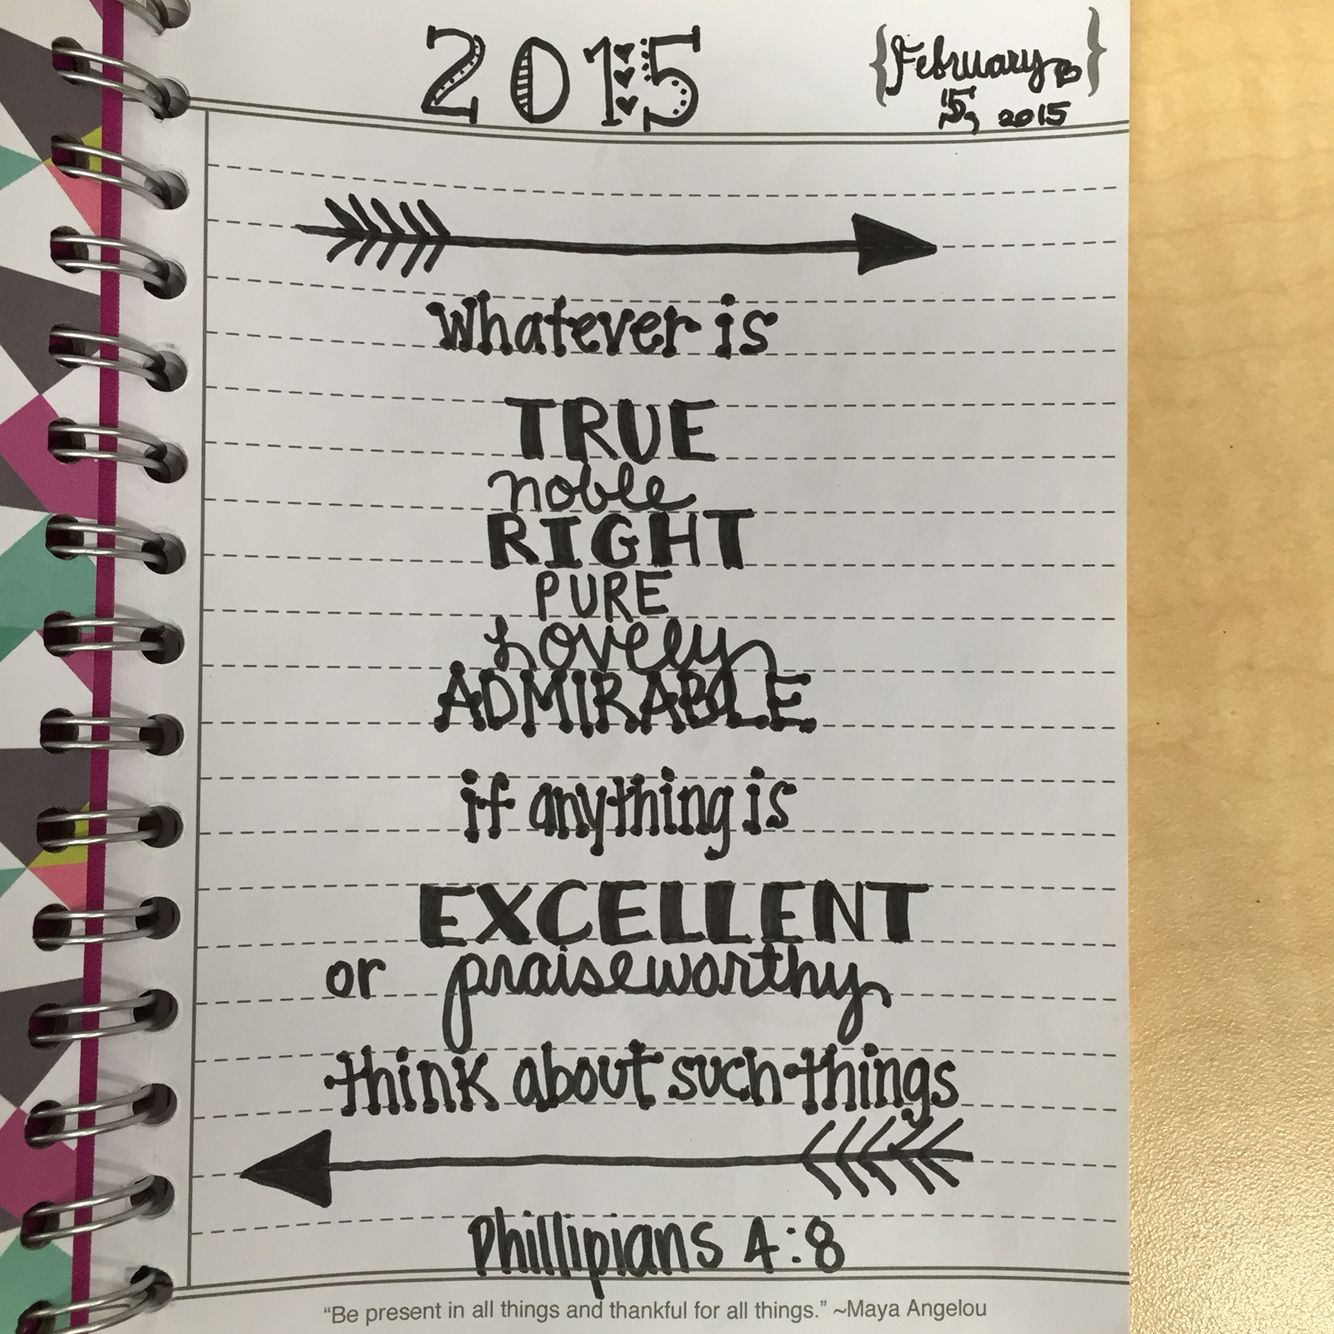 2015
{February}
15, 2015
Whatever is
TRUE
noble
RIGHT
PURE
Lovely
ADMIRABLE
if anything is
EXCELLENT
or praiseworthy
think about such things
Phillipians 4:8
“Be present in all things and thankful for all things.” ~Maya Angelou